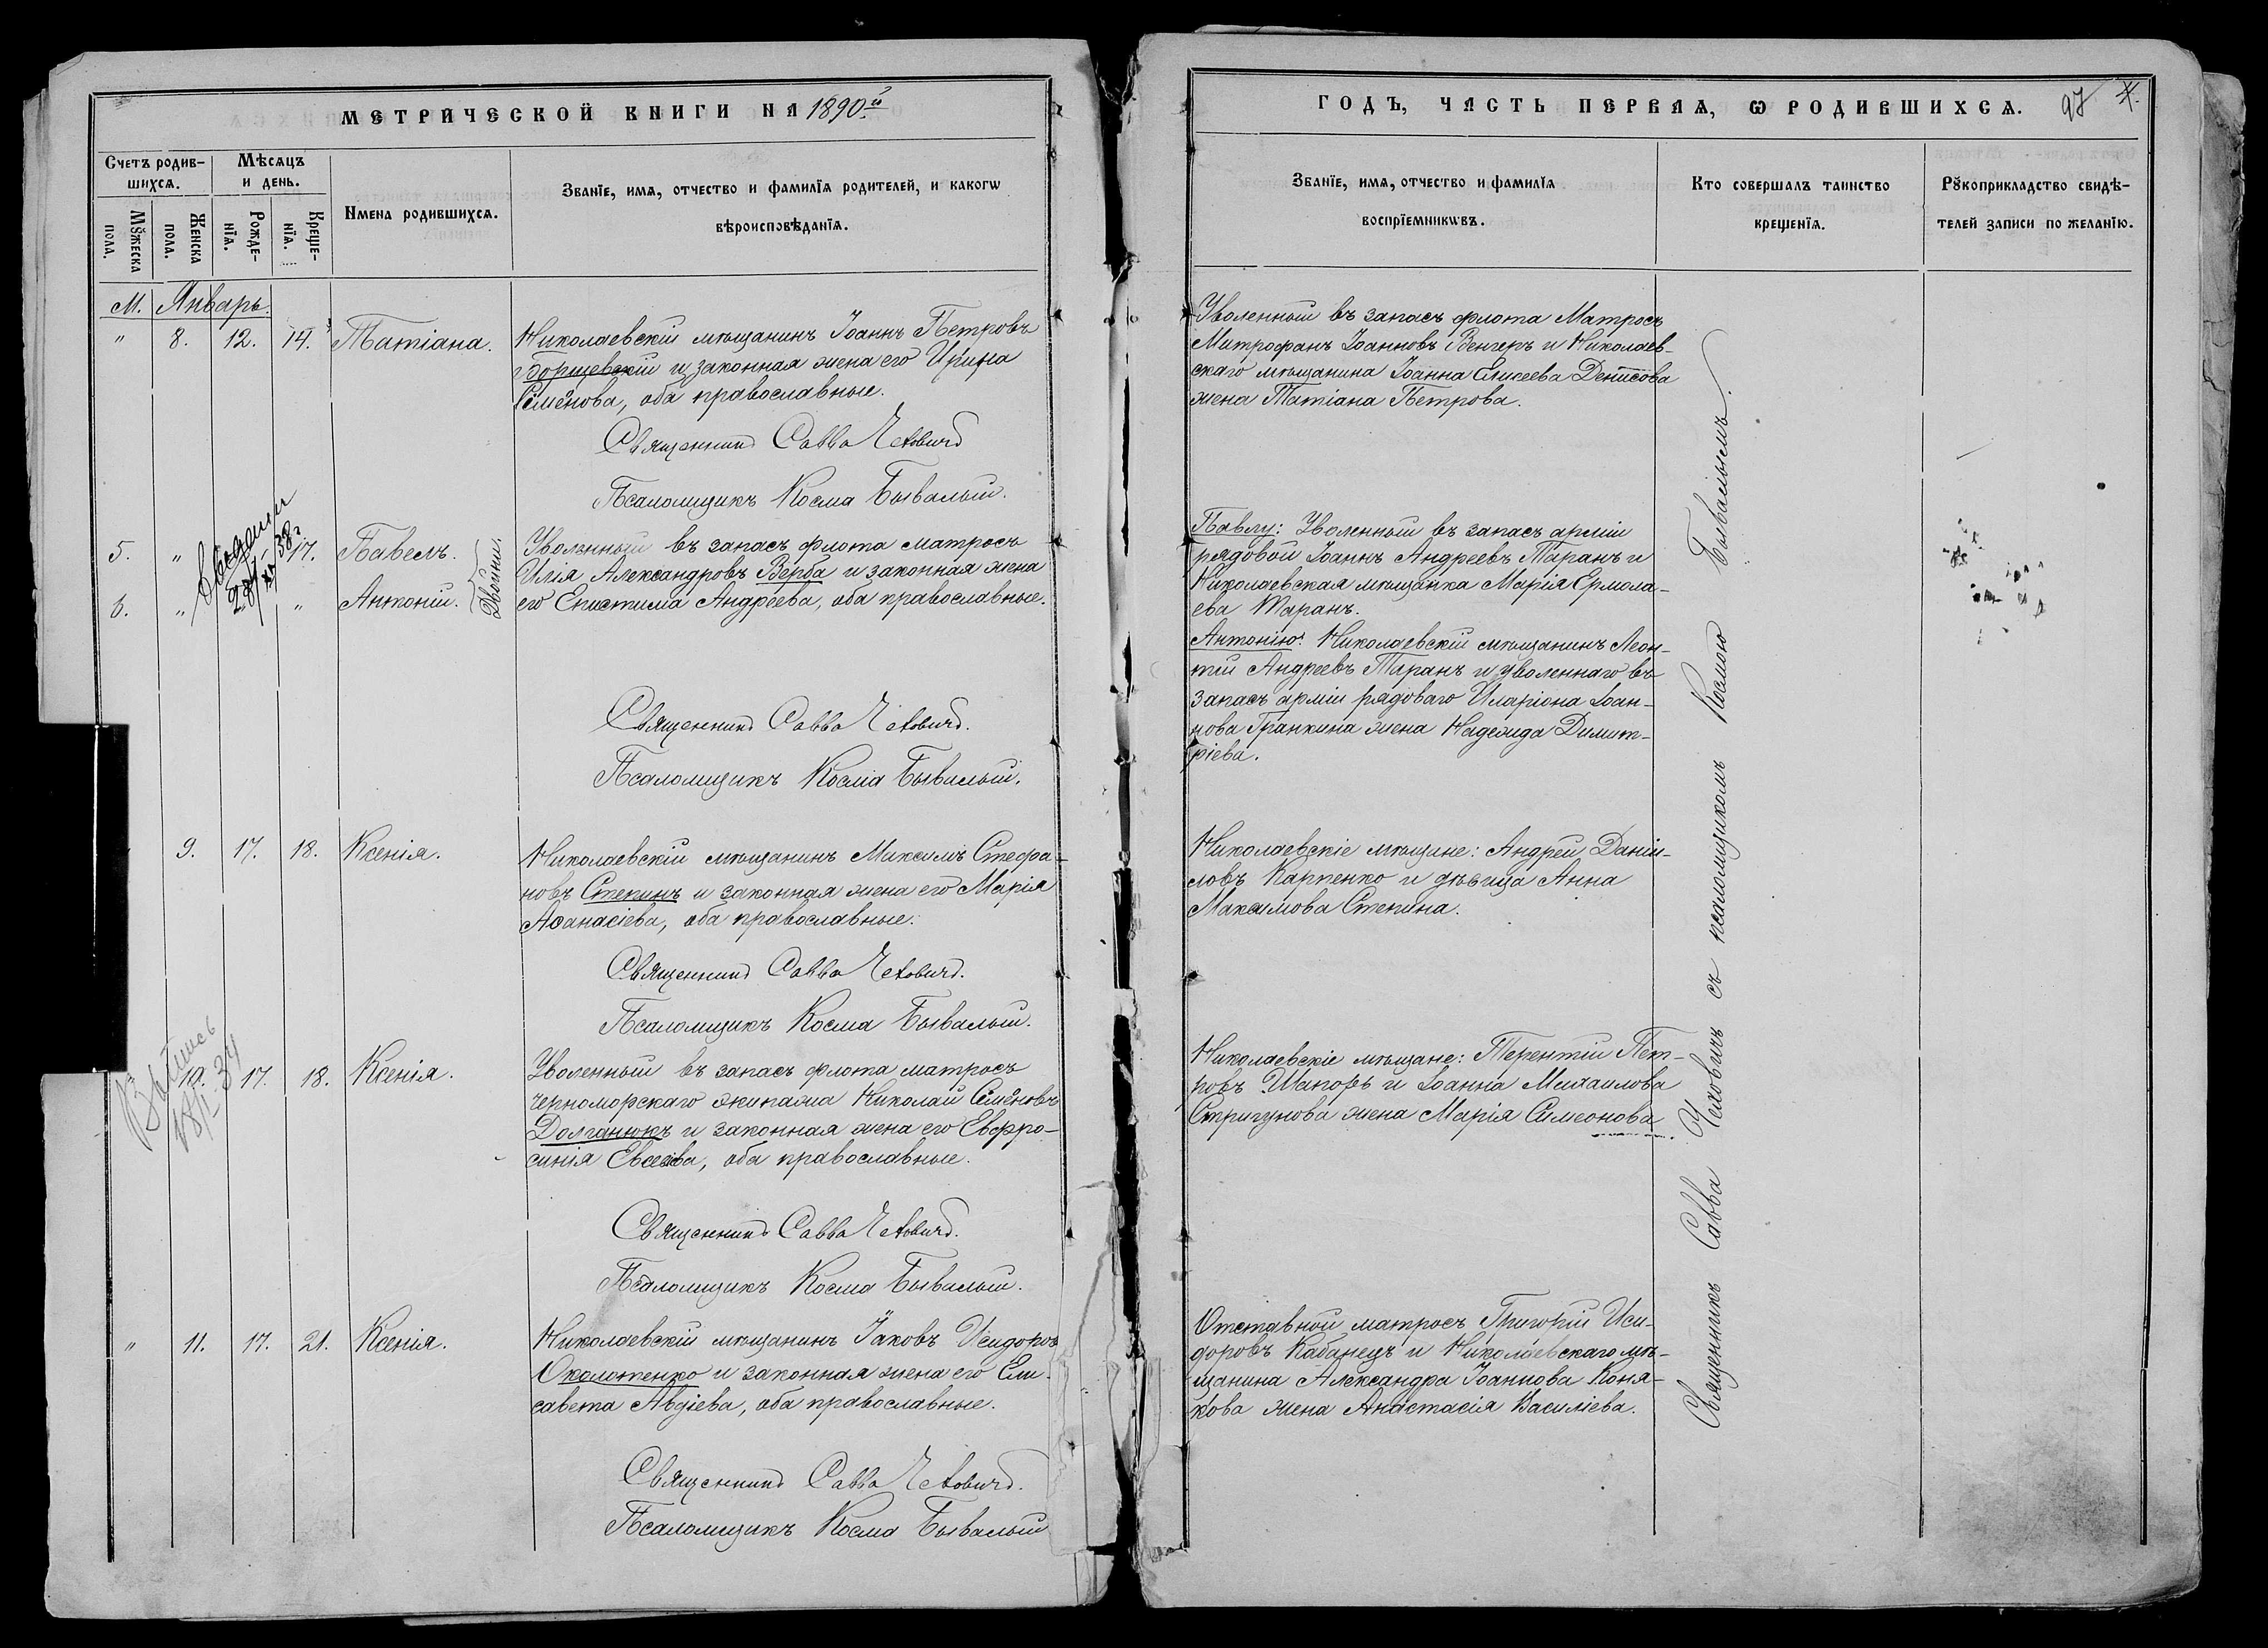 МЕТРИЧЕСКОЙ КНИГИ НА 1890.й
Счетъ родив-
шихсѧ.
Мѣсѧцъ
и день.
Мꙋжеска
пола.
Женска
пола.
Рожде-
нїѧ.
Креще-
нїѧ.
Имена родившихсѧ.
Званїе, имѧ, отчество и фамилїѧ родителей, и какогѡ
вѣроисповѣданїѧ.
М. Январь.
" 8. 12. 14. Татіана.
Николаевскій мѣщанинъ Іоаннъ Петровъ
Борщевскій и законная жена его Ирина
Семенова, оба православные.
Священникъ Савва Чехович
Псаломщикъ Косма Бывалый.
5. " 17. Павелъ.
6. " " Антоній.
Двойни.
28/XI 38 г.
Уволенный въ запасъ флота матросъ
Илія Александровъ Верба и законная жена
его Епистима Андреева, оба православные.
Священникъ Савва Чехович.
Псаломщикъ Косма Бывалый.
9. 17. 18. Ксенія.
Николаевскій мѣщанинъ Максимъ Стефа-
новъ Степинъ и законная жена его Марія
Аѳанасіева, оба православные.
Священникъ Савва Чехович.
Псаломщикъ Косма Бывалый.
10. 17. 18. Ксенія.
Уволенный въ запасъ флота матросъ
черноморскаго экипажа Николай Семеновъ
Долганюкъ и законная жена его Евфро-
синія Евсеева, оба православные.
Священникъ Савва Чехович.
Псаломщикъ Косма Бывалый.
" 11. 17. 21. Ксенія.
Николаевскій мѣщанинъ Іаковъ Исидоровъ
Околотенко и законная жена его Ели-
савета Авдіева, оба православные.
Священникъ Савва Чехович.
Псаломщикъ Косма Бывалый
ГОДЪ, ЧАСТЬ ПЕРВАѦ, Ѡ РОДИВШИХСѦ. 97
Званїе, имѧ, отчество и фамилїѧ
воспрїемникѡвъ.
Кто совершалъ таинство
крещенїѧ.
Рꙋкоприкладство свидѣ-
телей записи по желанїю.
Уволенный въ запасъ флота Матросъ
Митрофанъ Іоанновъ Венгеръ и Николаев-
скаго мѣщанина Іоанна Елисеева Денисова
жена Татіана Петрова.
Павлу: Уволенный въ запасъ арміи
рядовой Іоаннъ Андреевъ Таранъ и
Николаевская мѣщанка Марія Ермола-
ева Таранъ.
Антонію: Николаевскій мѣщанинъ Леон-
тій Андреевъ Таранъ и уволеннаго въ
запасъ арміи рядоваго Иларіона Іоан-
нова Гранкина жена Надежда Димит-
ріева.
Николаевскіе мѣщане: Андрей Даніи-
ловъ Карпенко и дѣвица Анна
Максимова Степина.
Николаевскіе мѣщане: Терентій Пет-
ровъ Шапоръ и Іоанна Михаилова
Стригунова жена Марія Симеонова
Отставной матросъ Григорій Иси-
доровъ Кабанецъ и Николаевскаго мѣ-
щанина Александра Іоаннова Коня-
кова жена Анастасія Василіева.
Священникъ Савва Чеховичъ съ псаломщикомъ Космою Бывалымъ.